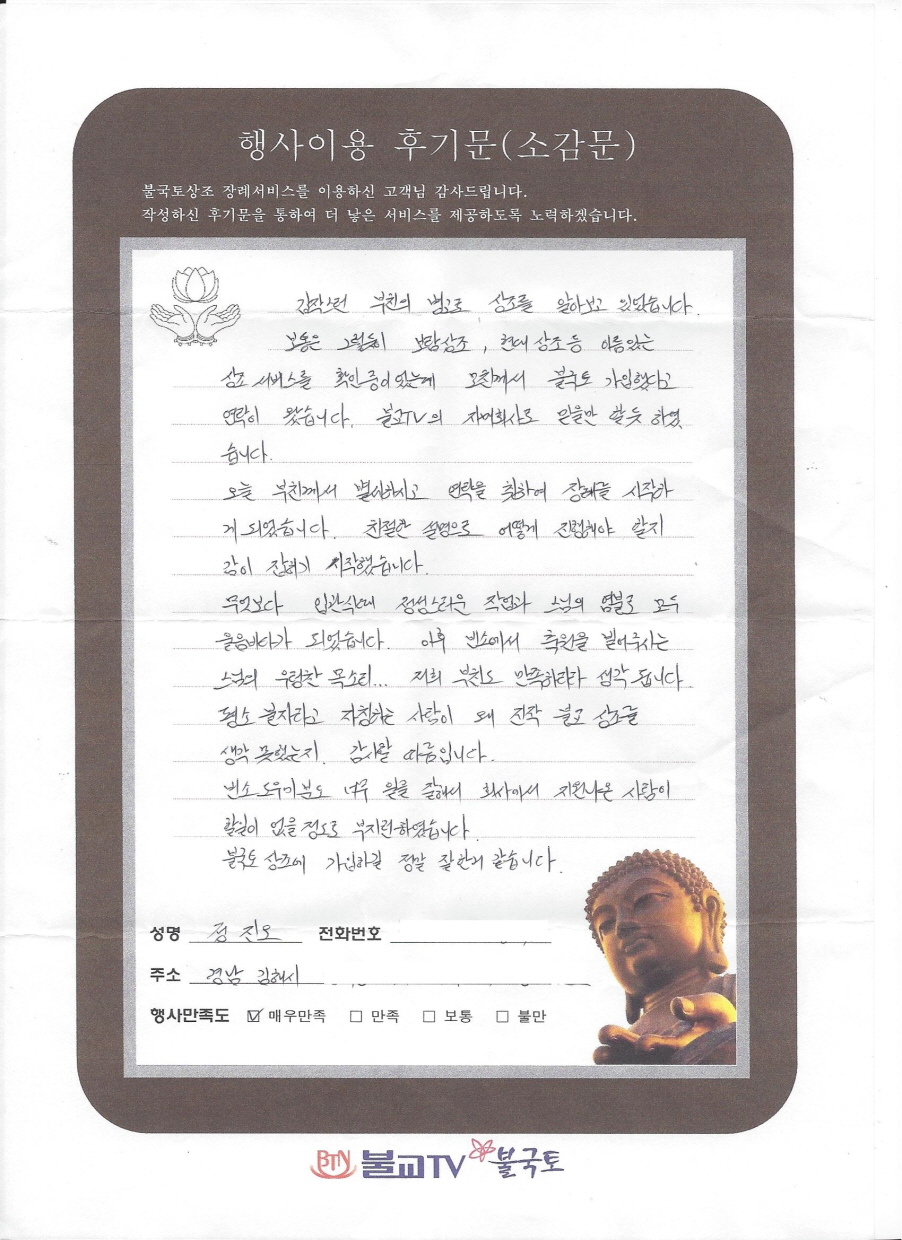 행사이용 후기문(소감문)
불국토상조 장례서비스를 이용하신 고객님 감사드립니다.
작성하신 후기문을 통하여 더 낳은 서비스를 제공하도록 노력하겠습니다.
갑작스런 부친의 병고로 상조를 알아보고 있었습니다.
보통은 그렇듯이 보람상조, 현대상조등 이름있는
상조 서비스를 확인중이었는데 모친께서 불국토 가입했다고
연락이 왔습니다. 불교TV의 자매회사로 믿을만 할듯 하였
습니다.
오늘 부친께서 별세하시고 연락을 취하여 장례를 시작하
게 되었습니다. 친절한 설명으로 어떻게 진행해야 할지
감이 잡히기 시작했습니다.
무엇보다 입관식때 정성스러운 작업과 스님의 염불로 모두
울음바다가 되었습니다. 이후 빈소에서 축원을 빌어주시는
스님의 우렁찬 목소리... 저희 부친도 만족하리라 생각 됩니다
평소 불자라고 자칭하는 사람이 왜 진작 불교 상조를
생각 못했는지. 감사할 따름입니다.
빈소 도우미분도 너무 일을 잘해서 회사에서 지원나온 사람이
할일이 없을 정도로 부지런하였습니다.
불국토 상조에 가입하길 정말 잘한거 같습니다.
성명 정진오 전화번호
주소 경남 김해시
행사만족도 ☑ 매우만족 □ 만족 □ 보통 □ 불만
BTN 불교TV 불국토